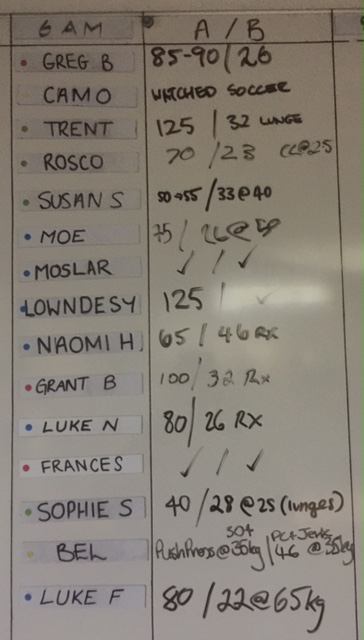 6 AM A / B
GREG B 85-90/26
CAMO WATCHED SOCCER
TRENT 125 / 32 LUNGE
ROSCO 70 / 23 CC@25
SUSAN S 50→55/33@40
MOE 75/ 26@
MOSLAR ✓ / ✓
LOWNDESY 125 / ✓
NAOMI H 65 / 46 RX
GRANT B 100/ 32 Rx
LUKE N 80/26 RX
FRANCES ✓ / ✓
SOPHIE S 40 /28 @25 (lunges)
BEL PushPress@35kg / PC+Jerks 46 @35kg
LUKE F 80 /22@65kg